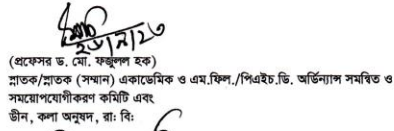 (প্রফেসর ড. মো. ফজলুল হক)
স্নাতক/স্নাতক (সম্মান) একাডেমিক ও এম.ফিল./পিএইচ.ডি. অর্ডিন্যান্স সমন্বিত ও
সময়োপযোগীকরণ কমিটি এবং
ডীন, কলা অনুষদ, রাঃ বিঃ